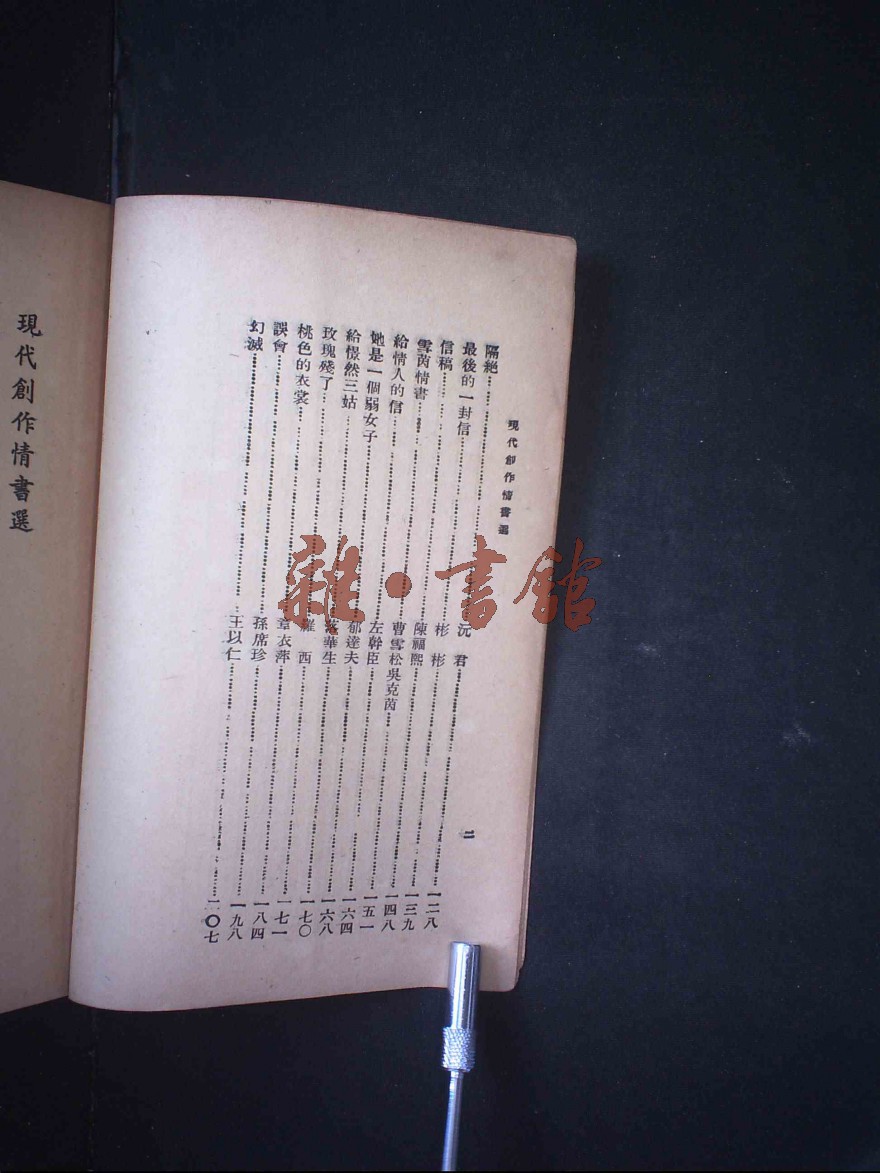 現代創作情書選
二
隔絕……沅君……一二八
最後的一封信……彬彬……一三九
信稿……陳福熙……一四八
雪茵情書……曹雪松吳克茵……一五一
給情人的信……左幹臣……一六四
她是一個弱女子……郁達夫……一六八
給憬然三姑……落華生……一七〇
玫瑰殘了……羅西……一七一
桃色的衣裳……章衣萍……一八四
誤會……孫席珍……一九八
幻滅……王以仁……二〇七
現代創作情書選
雜·書館